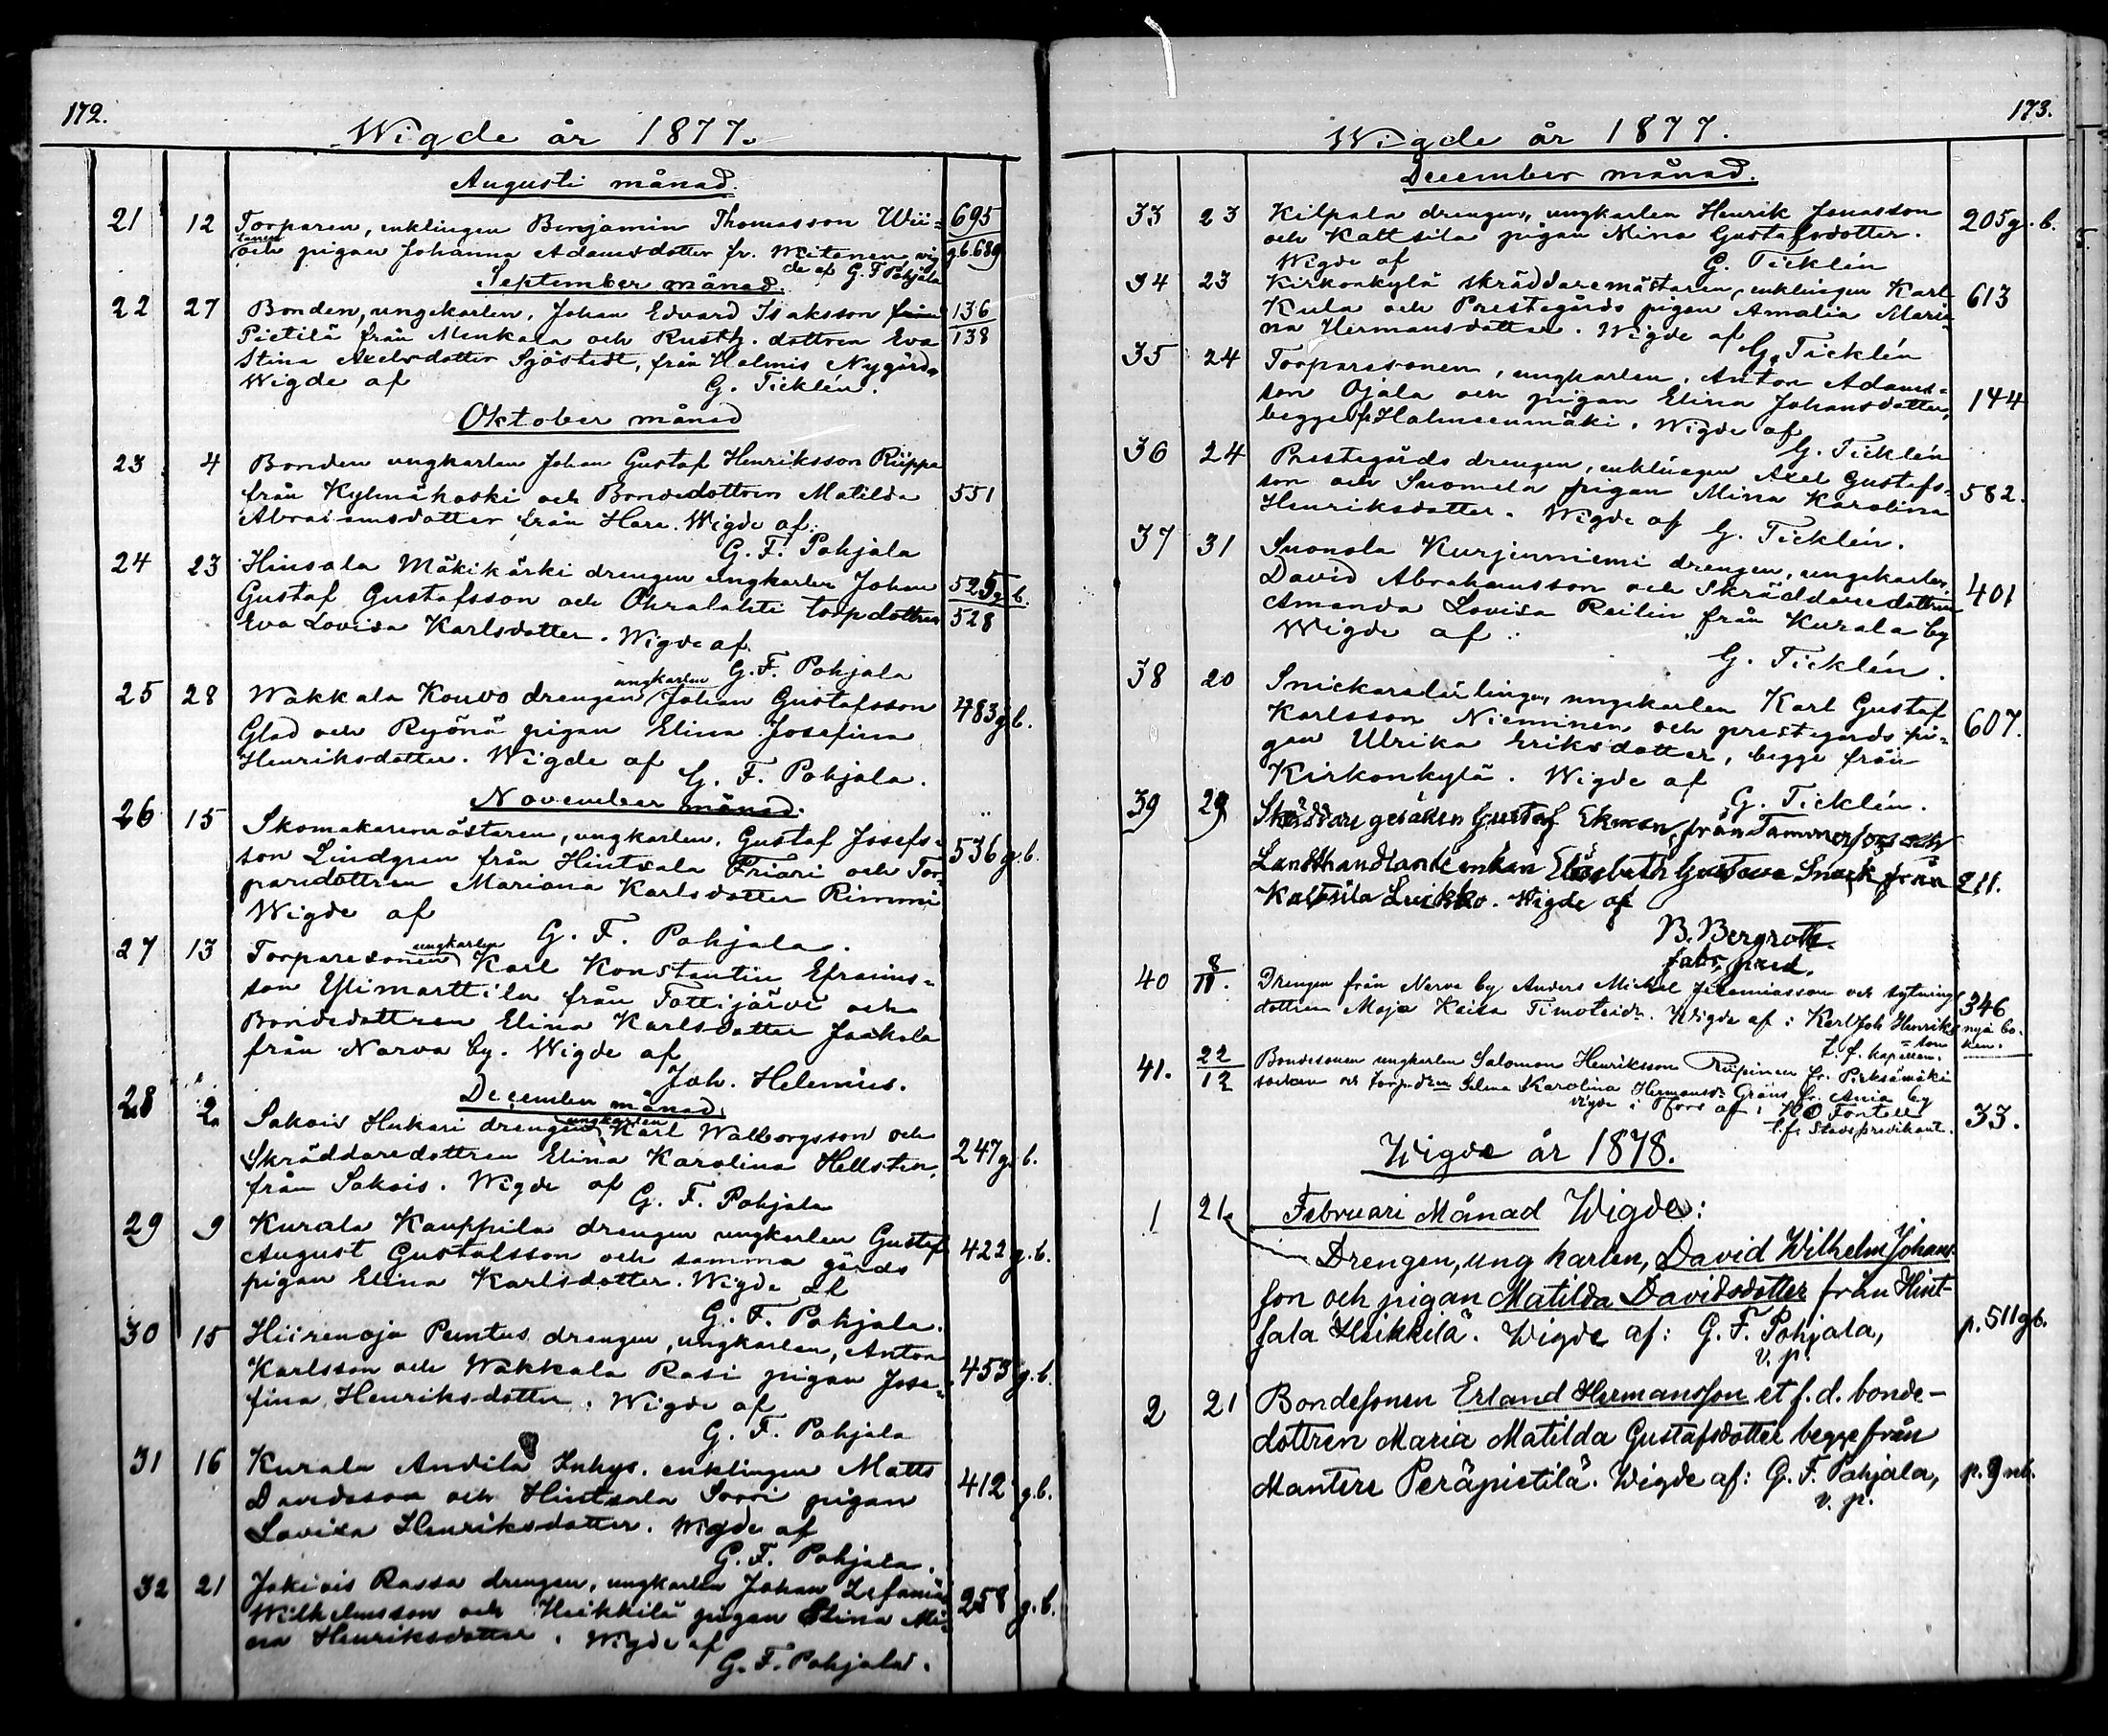 172.
Wigde år 1877.
Augusti månad.
21 12 Torparen, enklingen Benjamin Thomasson Wii= 695
tanen
och pigan Johanna Adamsdotter fr. Witanen, vig g.b. 689
de af G. F Pohjala
September månad.
22 27 Bonden, ungkarlen, Johan Edvard Isaksson 136
Pietilä från Menkala och Rusth. dottren Eva 138
Stina Axelsdotter Sjöstedt, från Halmis Nygård.
Wigde af G. Ticklén.
Oktober månad
23 4 Bonden ungkarlen Johan Gustaf Henriksson Riippa
från Kylmäkoski och Bondedottren Matilda 551
Abrahamsdotter från Hare. Wigde af:
G. F. Pohjala
24 23 Hinsala Mäkikärki drengen ungkarlen Johan 525 g.b.
Gustaf Gustafsson och Ohralahti torpdottren 528
Eva Lovisa Karlsdotter. Wigde af.
G. F. Pohjala
ungkarlen
25 28 Wakkala Kouvo drengen Johan Gustafsson 483 g.b.
Glad och Ryönä pigan Elina Josefina
Henriksdotter. Wigde af G. F. Pohjala.
November månad.
26 15 Skomakaremästaren, ungkarlen, Gustaf Josefs=
son Lindgren från Hintsala Friari och Tor= 536 g.b.
paredottren Mariana Karlsdotter Rimmi
Wigde af
G. F. Pohjala.
ungkarlen
27 13 Torparesonen Karl Konstantin Efraims=
son Ylimarttila från Tottijärvi och
Bondedottren Elina Karlsdotter Jaakola
från Narva by. Wigde af
Joh. Helenius.
December månad.
ungkarlen
28 2 Sakois Hukari drengen Karl Walborgsson och
Skräddaredottren Elina Karolina Hellsten, 247 g.b.
från Sakois. Wigde af G. F. Pohjala
29 9 Kurala Kauppila drengen ungkarlen Gustaf
August Gustafsson och samma gårds 422 g.b.
pigan Elina Karlsdotter. Wigde af
G. F. Pohjala.
30 15 Hiirenoja Puntus drengen, ungkarlen, Anton
Karlsson och Wakkala Rasi pigan Jose= 453 g.b.
fina Henriksdotter. Wigde af
G. F. Pohjala
31 16 Kurala Andila Inhys. enklingen Matts
Davidsson och Hintsala Sorri pigan 412 g.b.
Lovisa Henriksdotter. Wigde af
G. F. Pohjala.
32 21 Jokiois Rassa drengen, ungkarlen Johan Zefanias
Wilhelmsson och Heikkilä pigan Stina Mi= 258 g.b.
na Henriksdotter. Wigde af
G. F. Pohjala.
173.
Wigde år 1877.
December månad.
33 23 Kilpala drengen, ungkarlen Henrik Jonasson 205 g.b.
och Kattsila pigan Mina Gustafsdotter.
Wigde af G. Ticklén
34 23 Kirkonkylä skräddaremästaren, enklingen Karl 613
Kula och Prestegårds pigan Amalia Maria=
na Hermansdotter. Wigde af
G. Ticklén
35 24 Torparesonen, ungkarlen, Anton Adams=
son Ojala och pigan Elina Johansdotter, 144
begge fr. Halmeenmäki. Wigde af
G. Ticklén
36 24 Prestegårds drengen, enklingen Axel Gustafs=
son och Suomela pigan Mina Karolina 582.
Henriksdotter. Wigde af G. Ticklén.
37 31 Suonola Kurjenniemi drengen, ungkarlen,
David Abrahamsson och Skräddaredottren 401
Amanda Lovisa Reilin från Kurala by
Wigde af:
G. Ticklén.
38 20 Snickarelärlingen, ungkarlen Karl Gustaf
Karlsson Nieminen och prestegårds pi= 607.
gan Ulrika Eriksdotter, begge från
Kirkonkylä. Wigde af
G. Ticklén.
39 29 Skräddare gesällen Gustaf Ekman, från Tammerfors och
Landthandlande enkan Elisabeth Gustava Snäck från 211.
Kaltsila Luikko. Wigde af
B. Bergroth.
fabr. pred.
40 8/11. Drengen från Narva by Anders Mickel Jeremiasson och sytning 346
dottren Maja Kaisa Timoteidr. Wigde af: Karl Joh Henriks nya bo-
=son ken.
t. f. kapellan.
41. 22/12 Bondesonen ungkarlen Salomon Henriksson Riipinen fr. Pieksämäki
socken och torp.d:n Selma Karolina Hermansdr Gräns fr. Ania by
vigde i fors af: K O Fontell 33.
t.f. Stadspredikant.
Wigde år 1878.
1 21. Februari Månad Wigde:
Drengen, ung karlen, David Wilhelm Johans-
son och pigan Matilda Davidsdotter från Hint-
sala Heikkilä. Wigde af: G. F. Pohjala, p. 511 gb.
v. p.
2 21 Bondesonen Erland Hermansson et f. d. bonde-
dottren Maria Matilda Gustafsdotter begge från
Mantere Peräpietilä. Wigde af: G. F. Pohjala, p. 9 nb.
v. p.